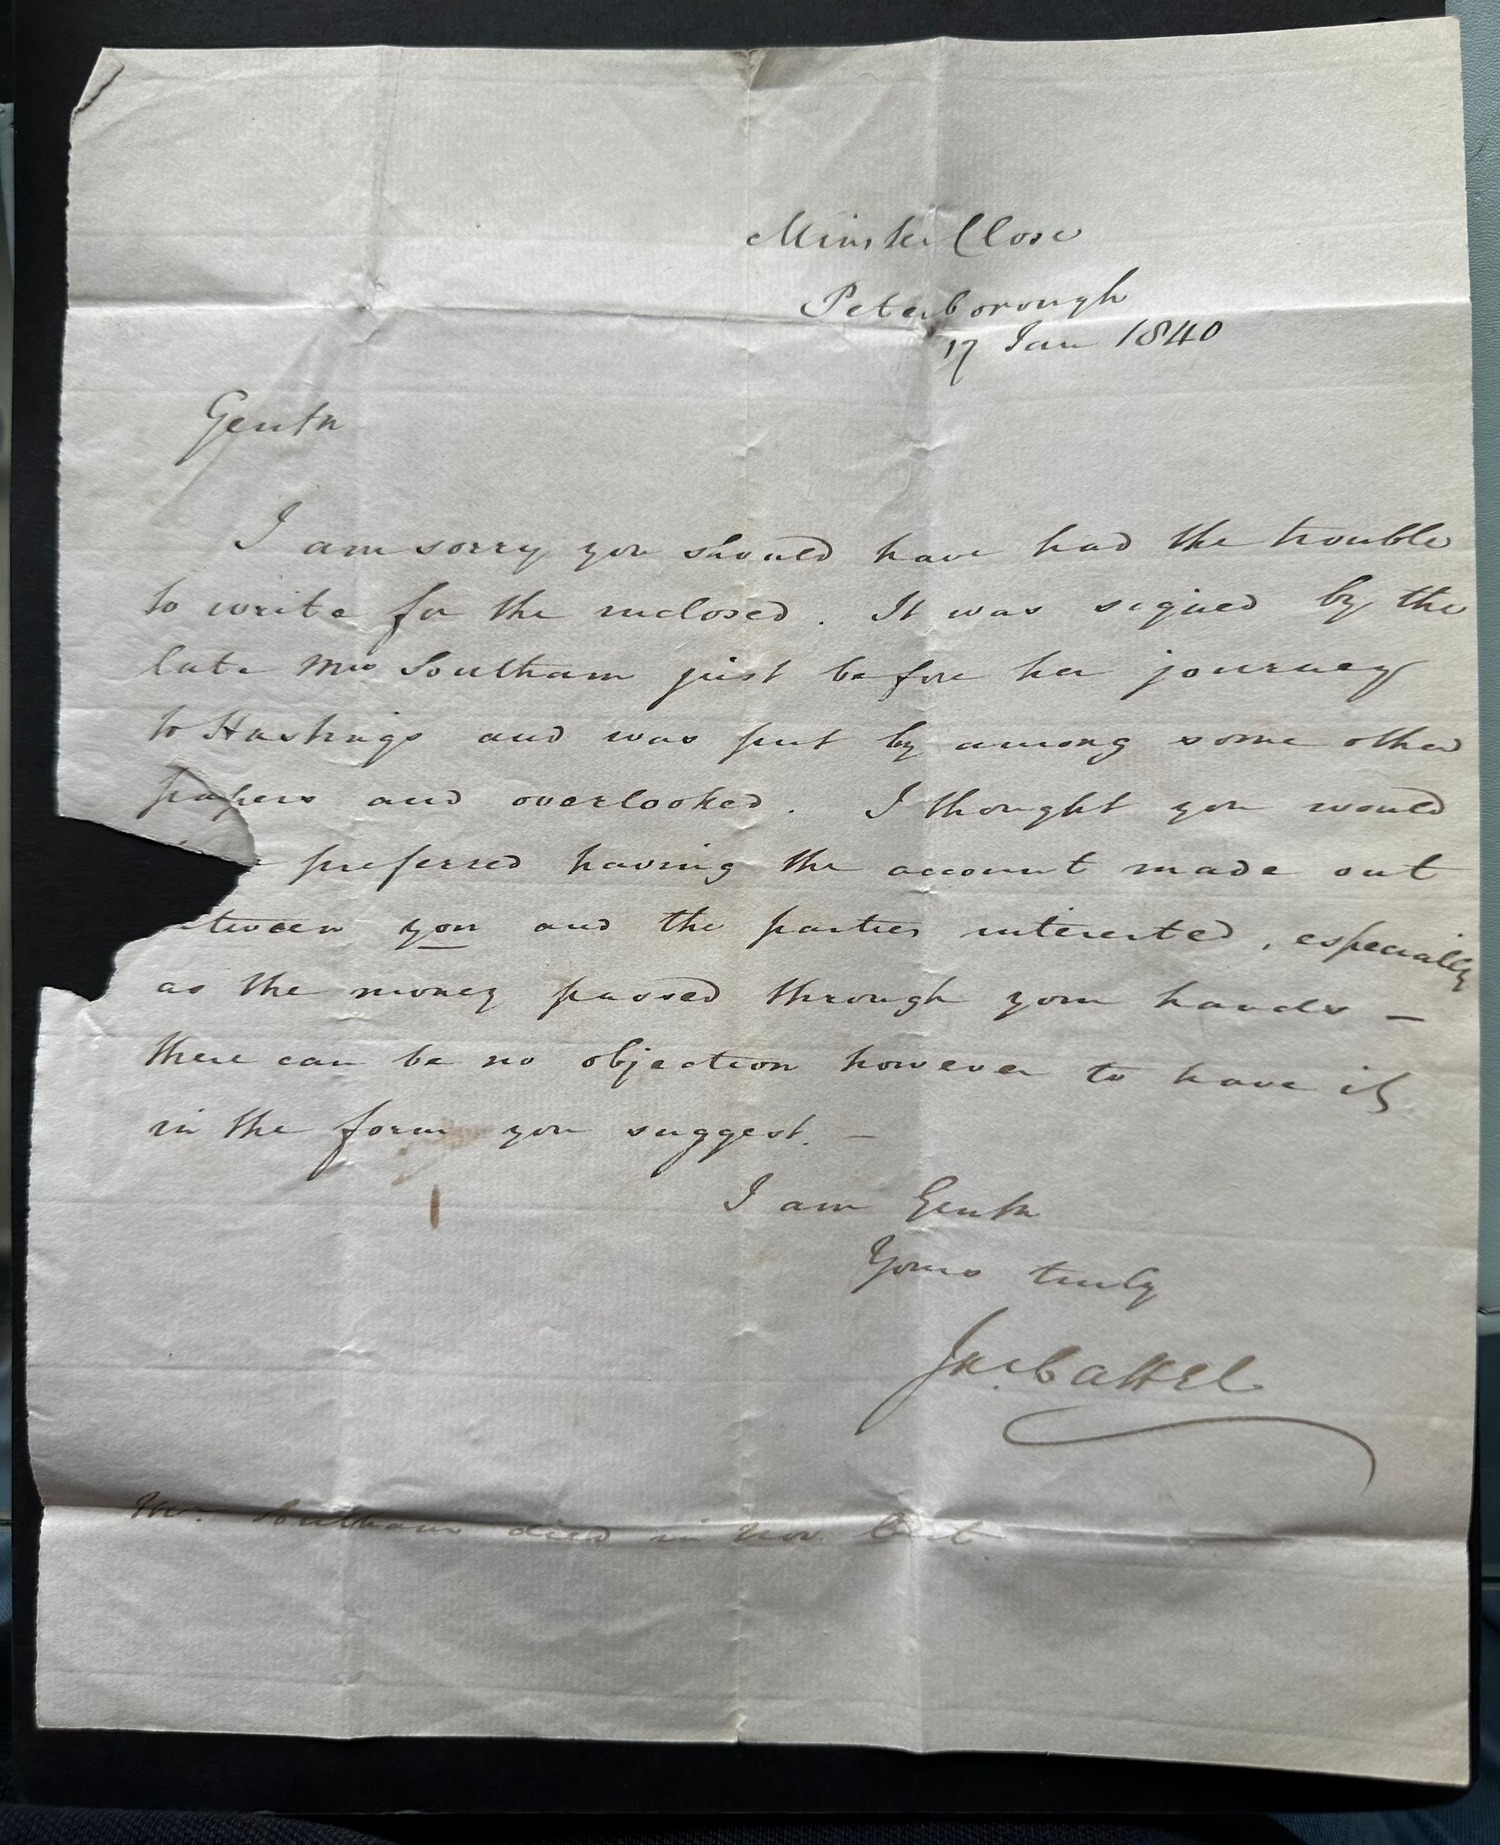 Minster Close
Peterborough
17 Jan 1840
Gentn
I am sorry you should have had the trouble
to write for the inclosed. It was signed by the
late Mrs Southam just before her journey
to Hastings and was put by among some other
papers and overlooked. I thought you would
preferred having the account made out
etween you and the parties interested, especially
as the money passed through your hands —
there can be no objection however to have it
in the form you suggest. —
I am Gentn
Yours truly
Jno. Cattel
Mrs. Southam died in Nov last